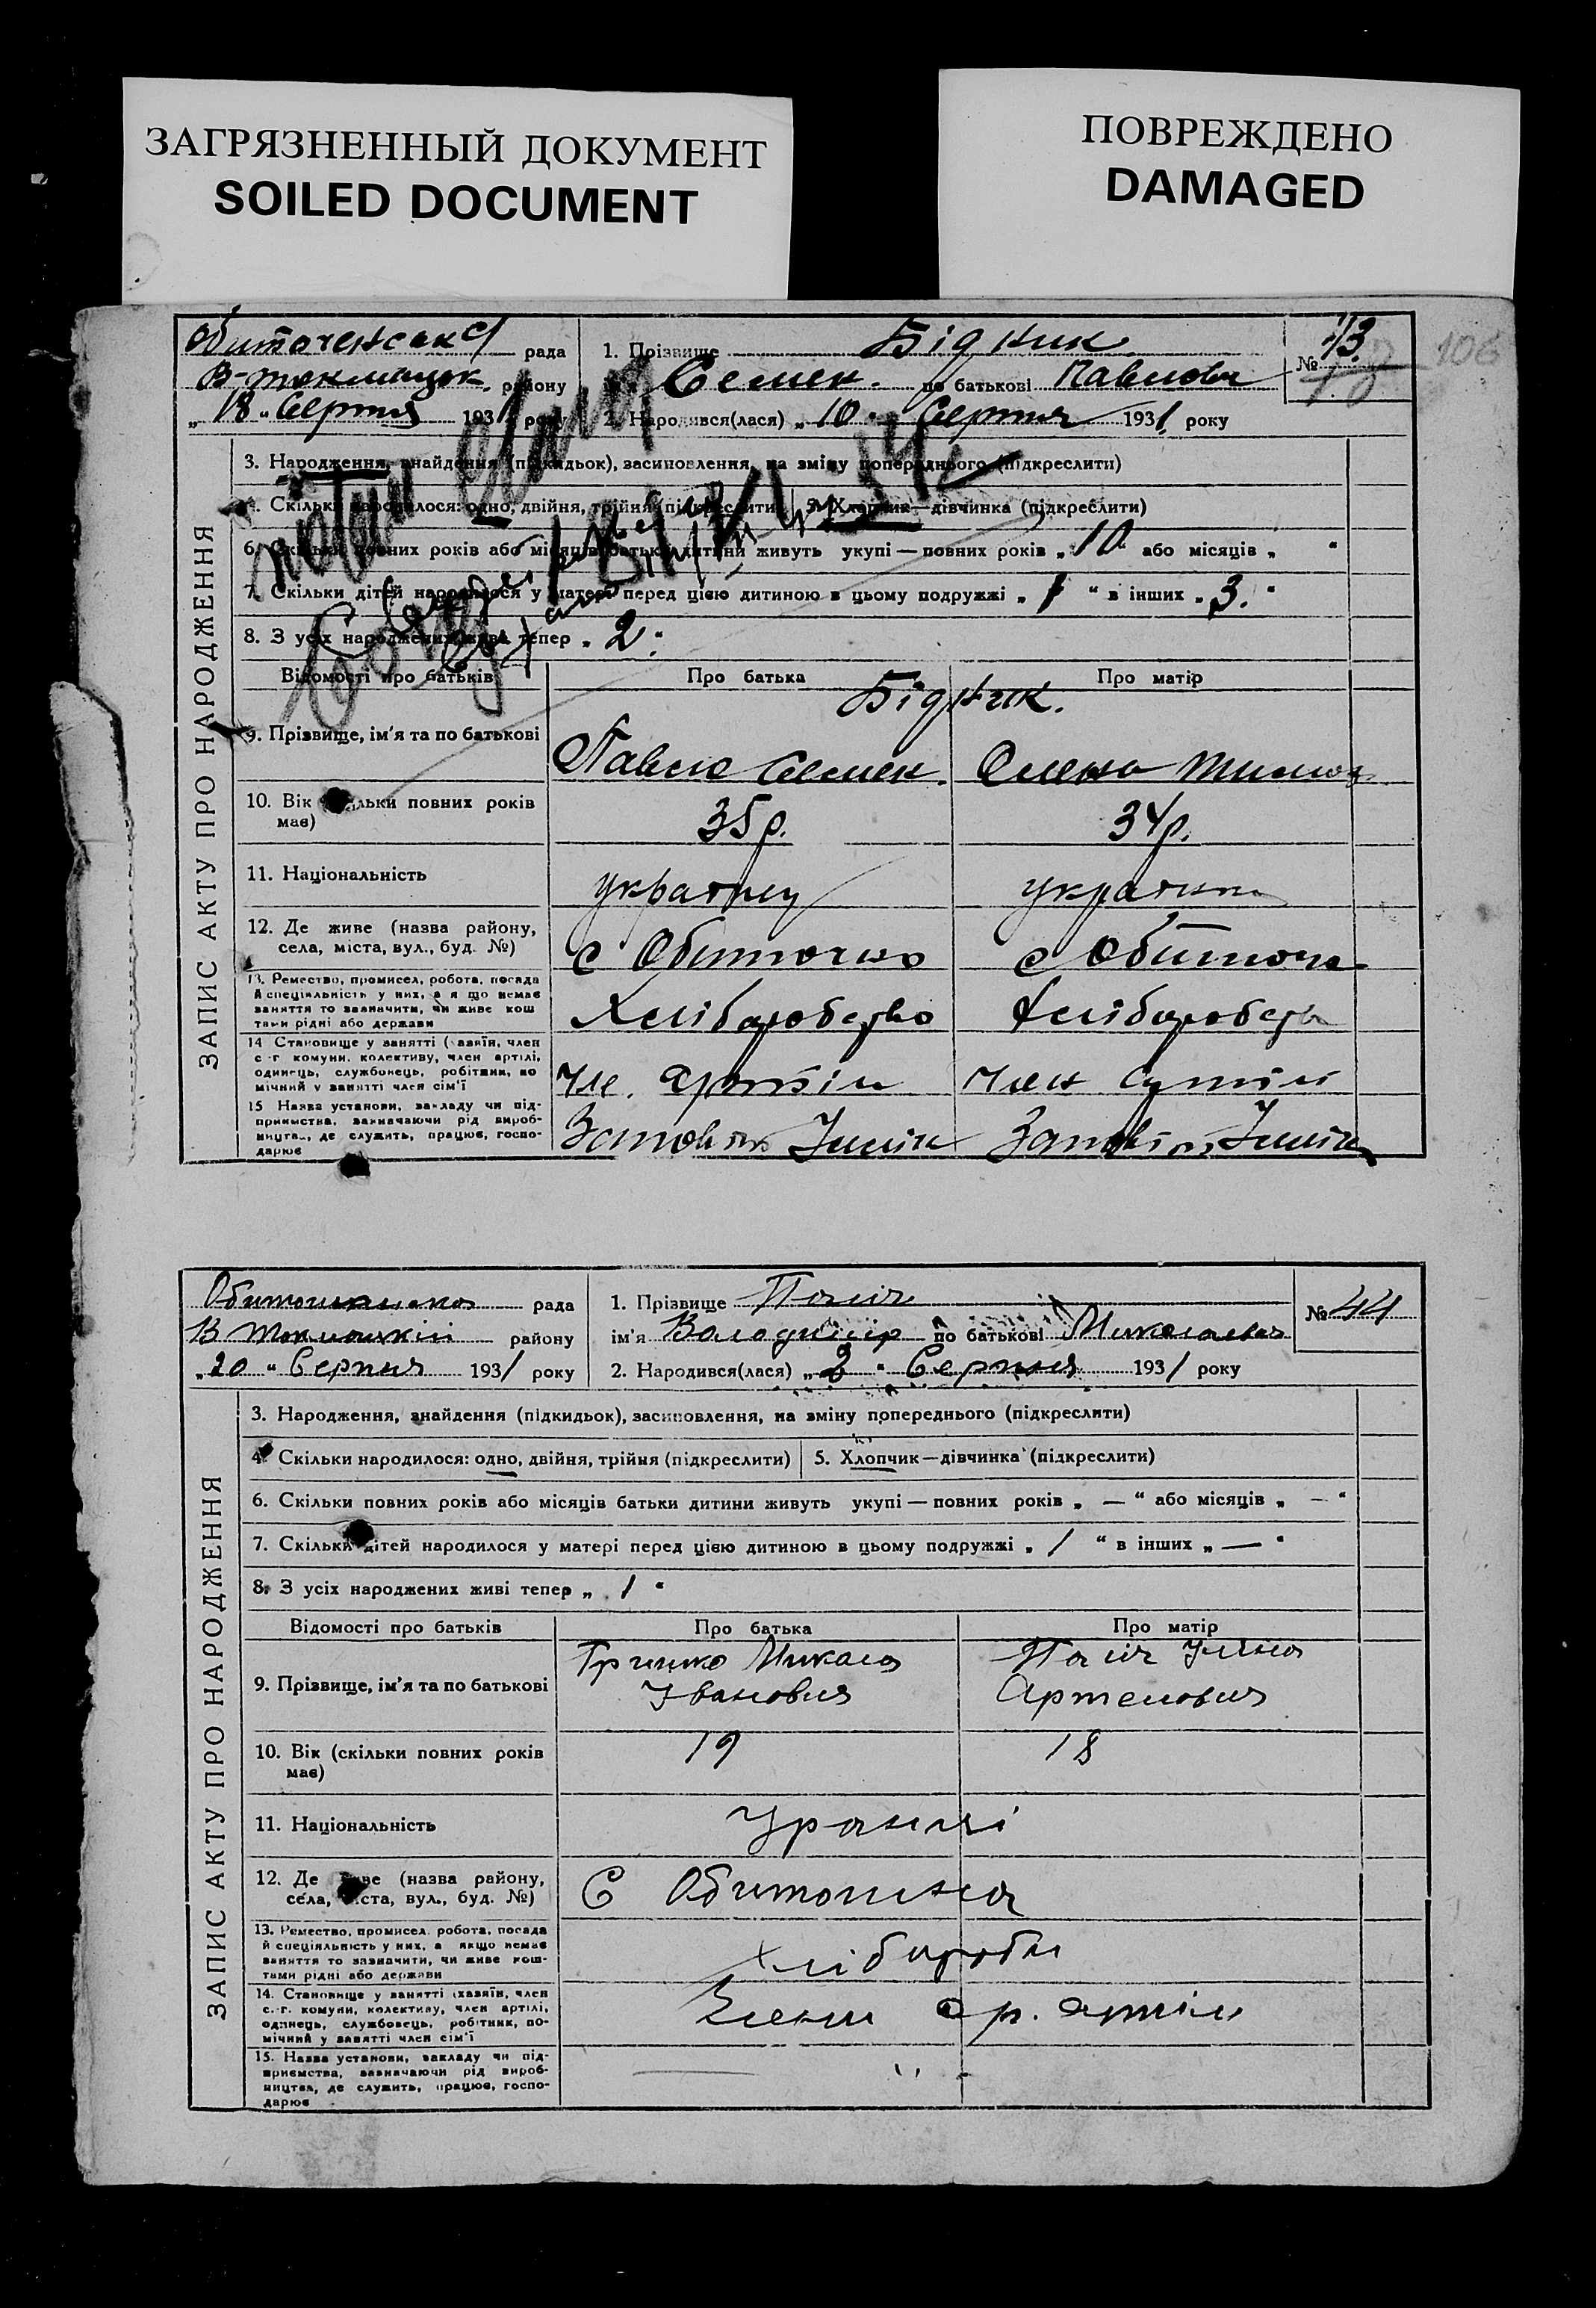 ЗАГРЯЗНЕННЫЙ ДОКУМЕНТ
SOILED DOCUMENT
ПОВРЕЖДЕНО
DAMAGED
106
ЗАПИС АКТУ ПРО НАРОДЖЕННЯ
рада
району
„18“ Серпня 1931 року
1. Прізвище Бідник
Семен. по батькові Павлович
2. Народився(лася) „10“ Серпня 1931 року
№ 43
3. Народження, знайдення (підкидьок), засиновлення, на зміну попереднього (підкреслити)
4. Скільки народилося: одно, двійня, трійня (підкреслити)
5. Хлопчик—дівчинка (підкреслити)
6. Скільки повних років або місяців батьки дитини живуть укупі — повних років „10“ або місяців „ “
7. Скільки дітей народилося у матері перед цією дитиною в цьому подружжі „ “ в інших „3.“
8. З усіх народжених живі тепер „2“
Відомості про батьків
Про батька
Про матір
9. Прізвище, ім'я та по батькові
Бідник.
Павло Семен.
Олена
10. Вік (скільки повних років має)
35 р.
34 р.
11. Національність
українец
українка
12. Де живе (назва району,
села, міста, вул., буд. №)
с Обиточно
с Обиточн
13. Ремество, промисел, робота, посада
й спеціяльність у них, а якщо немає
заняття то зазначити, чи живе кош
тами рідні або держави
Хліборобство
Хліборобств
14 Становище у занятті (хазяїн, член
с.-г. комуни, колективу, член артілі,
одинець, службовець, робітник, по
мічний у занятті член сім'ї
Чле. Артіли
Член Артілі
15 Назва установи, закладу чи під-
приємства, зазначаючи рід вироб-
ництва, де служить, працює, госпо-
дарює
Заповіт Ілліча
Заповіт Ілліча
ЗАПИС АКТУ ПРО НАРОДЖЕННЯ
рада
В Токмацький району
„20“ Серпня 1931 року
1. Прізвище Паліч
ім'я Володимір по батькові Миколаевич
2. Народився(лася) „2“ Серпня 1931 року
№ 44
3. Народження, знайдення (підкидьок), засиновлення, на зміну попереднього (підкреслити)
4. Скільки народилося: одно, двійня, трійня (підкреслити)
5. Хлопчик—дівчинка (підкреслити)
6. Скільки повних років або місяців батьки дитини живуть укупі — повних років „ — “ або місяців „ — “
7. Скільки дітей народилося у матері перед цією дитиною в цьому подружжі „ 1 “ в інших „ — “
8. З усіх народжених живі тепер „ 1 “
Відомості про батьків
Про батька
Про матір
9. Прізвище, ім'я та по батькові
Гришко Микола
Іванович
Паліч Уліна
Артемовна
10. Вік (скільки повних років
має)
19
18
11. Національність
Украінці
12. Де живе (назва району,
села, міста, вул., буд. №)
С Обиточна
13. Ремество, промисел, робота, посада
й спеціяльність у них, а якщо немає
заняття то зазначити, чи живе кош-
тами рідні або держави
Хлібороби
14. Становище у занятті (хазяїн, член
с.-г. комуни, колективу, член артілі,
одинець, службовець, робітник, по-
мічний у занятті член сім'ї
Члени ар. артіли
15. Назва установи, закладу чи під-
приємства, зазначаючи рід вироб-
ництва, де служить, працює, госпо-
дарює